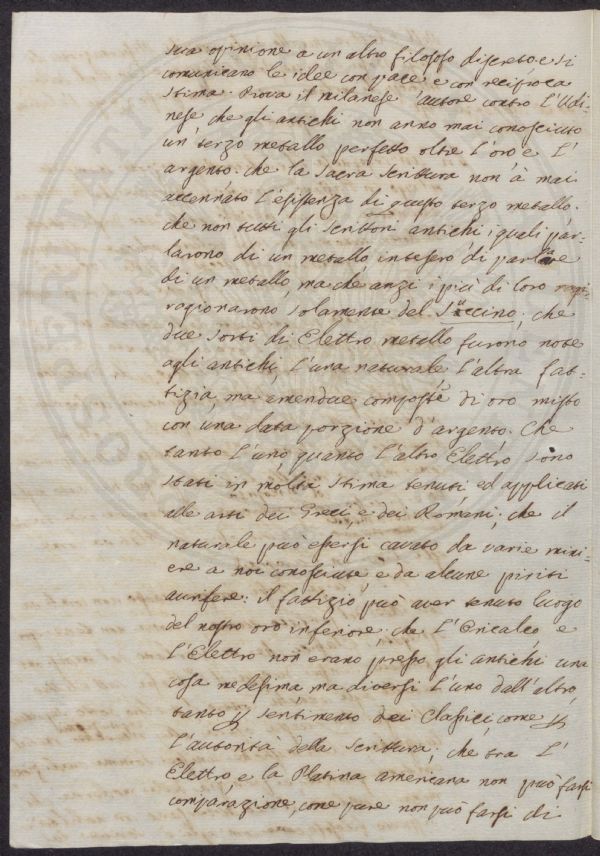 sua opinione a un altro filosofo discreto e si
comunicano le idee con pace e con reciproca
stima. Prova il milanese autore contro l'Udi-
nese che gli antichi non anno mai conosciuto
un terzo metallo perfetto oltre l'oro e l'
argento: che la sacra Scrittura non à mai
accennato l'esistenza di questo terzo metallo.
che non tutti gli scrittori antichi, quali par-
larono di un metallo intesero di parlare
di un metallo, ma che anzi i piu di loro
ragionarono solamente del Succino: che
due sorti di Elettro metallo furono note
agli antichi, l'una naturale l'altra fat-
tizia, ma amendue composte di oro misto
con una data porzione d'argento. Che
tanto l'uno quanto l'altro Elettro sono
stati in molta stima tenuti, ed applicati
alle arti dei Greci e dei Romani; che il
naturale può essersi cavato da varie mini-
ere a noi conosciute, e da alcune piriti
aurifere: il fattizio può aver tenuto luogo
del nostro oro inferiore: che l'Oricalco e
l'Elettro non erano presso gli antichi una
cosa medesima ma diversi l'uno dall'altro,
tanto p sentimento dei Classici, come p
l'autorità della Scrittura; che tra l'
Elettro e la Platina americana non può farsi
comparazione, come pure non può farsi di